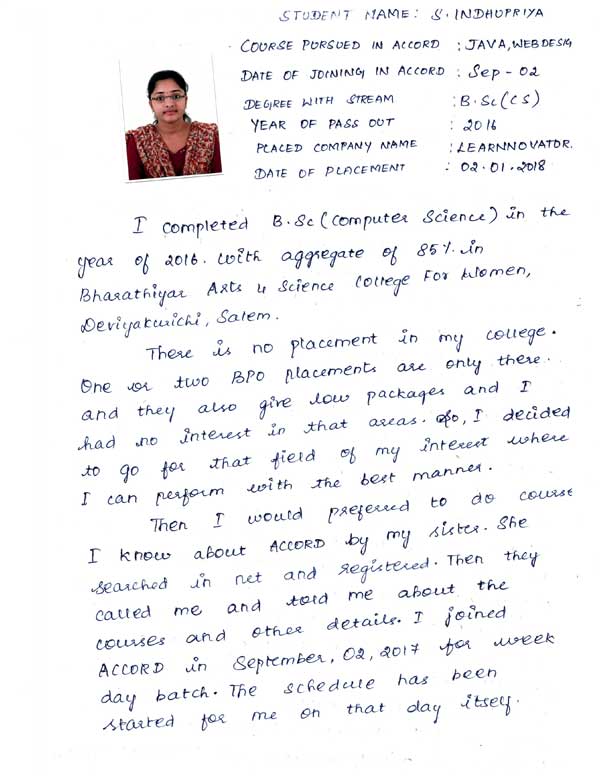 STUDENT NAME: S. INDHUPRIYA
COURSE PURSUED IN ACCORD : JAVA, WEBDESIG
DATE OF JOINING IN ACCORD : Sep - 02
DEGREE WITH STREAM : B.Sc (CS)
YEAR OF PASS OUT : 2016
PLACED COMPANY NAME : LEARNNOVATOR.
DATE OF PLACEMENT : 02.01.2018
I completed B.Sc (Computer Science) in the
year of 2016. with aggregate of 85%. in
Bharathiyar Arts & Science College For Women,
Deviyakurichi, Salem.
There is no placement in my college.
One or two BPO placements are only there.
and they also give low packages and I
had no interest in that areas. So, I decided
to go for that field of my interest where
I can perform with the best manner.
Then I would preferred to do course
I know about ACCORD by my sister. She
searched in net and registered. Then they
called me and told me about the
courses and other details. I joined
ACCORD in September, 02, 2017 for week
day batch. The schedule has been
started for me on that day itself.